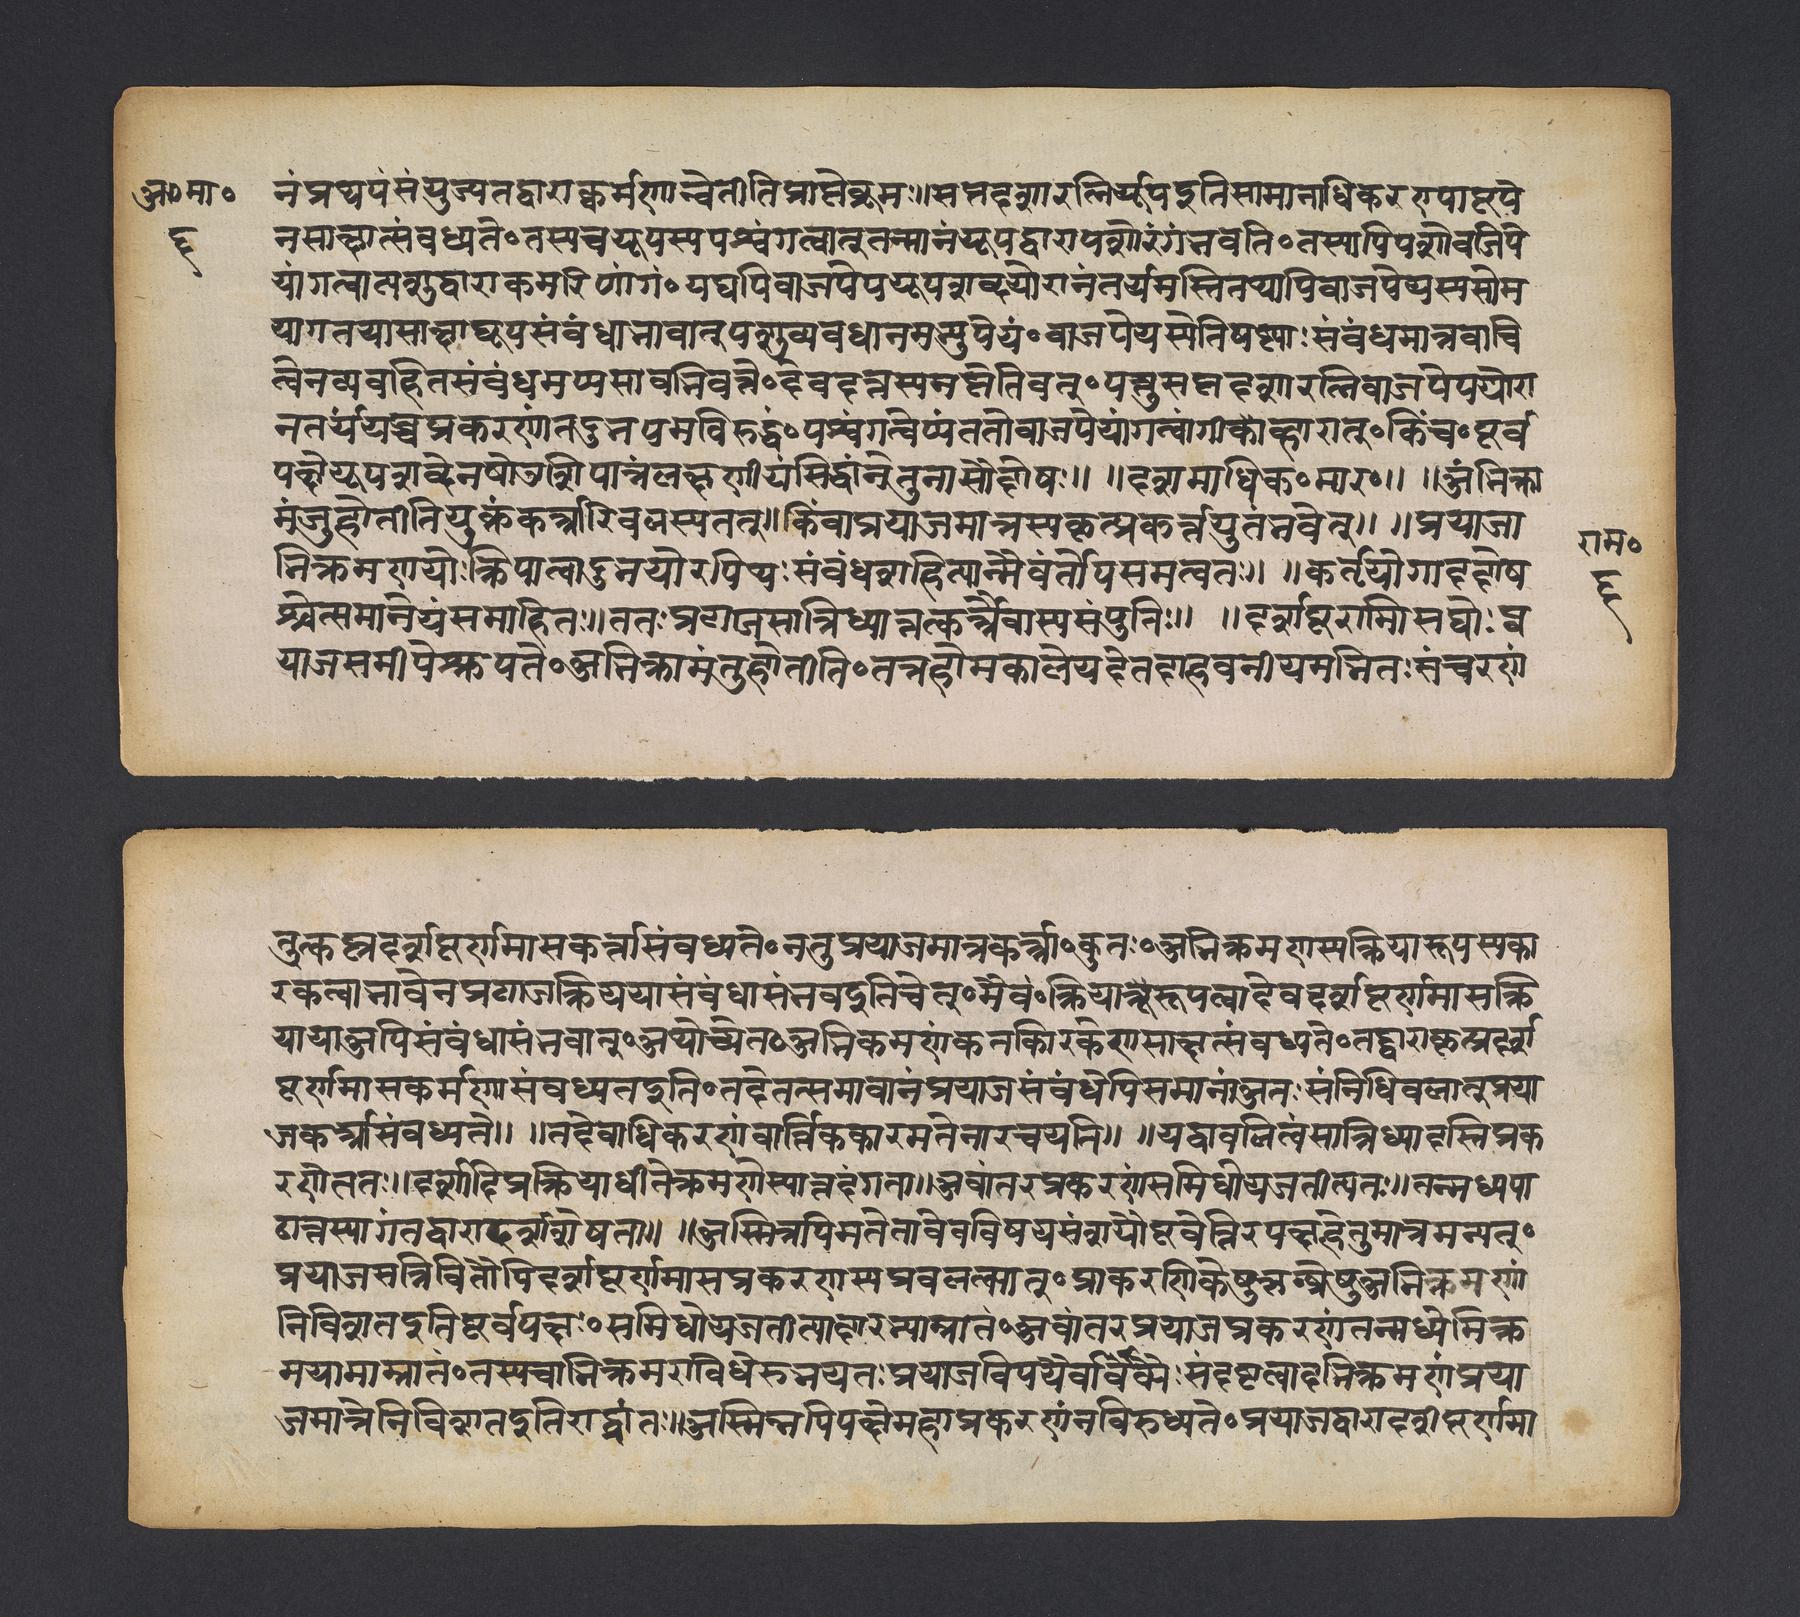 अ॰मा॰
ह
नंप्रथपंसंयुज्यतद्वाराकर्मणान्वेतीतिप्राप्तेब्रूमः॥सप्तदशारत्निर्यूपइतिसामानाधिकरण्पाद्यूपे
नसाक्षात्संबध्यते॰तस्यचयूपस्यपश्वंगत्वात्तुतन्मानंयूपद्वारापशोरंगंभवति॰तस्यापिपशोर्वाजपे
यांगत्वात्पशुद्वाराकर्मारिणांगं॰यद्यपिवाजपेययूपशब्दयोरानंतर्यमस्तितथापिवाजपेयस्यसोम
यागतयासाक्षाद्यूपसंबंधाभावात्पशुव्यवधानमभ्युपेयं॰वाजपेयस्येतिषष्ट्याःसंबंधमात्रवाचि
त्वेनव्यवहितसंबंधमप्यसावभिवक्ते॰देवदत्तस्यनप्तेतिवत्॰यस्तुसप्तदशारत्निवाजपेययोरा
नंतर्यंयच्चप्रकरणंतदुभयमविरुद्धं॰पश्वंगत्वेप्यंततोवाजपेयांगत्वांगीकाराात्॰किंच॰पूर्व
पक्षेयूपशब्देनषोडशिपात्रंलक्षणीयंसिद्धांतेतुनासौदोषः॥ ॥दशमाधिक॰मार॰॥ ॥अभिक्रा
मंजुहोतीतियुक्तंकर्त्रारिवलस्यतत्॥किंवाप्रयाजमात्रस्यकृत्प्रकर्त्रयुतंभवेत्॥ ॥प्रयाजा
भिक्रमणयोःक्रियात्वादुभयोरपिथःसंबंधशाहित्यान्मैवंतौपिसमत्वतः॥ ॥कर्तृयोगाददोष
श्चेत्समानेयंसमाहितः॥ततःप्रयाजसान्निध्यात्तत्कर्त्रैवास्यसंयुतिः॥ ॥दर्शपूर्णमासयोःप्र
याजसमीपेश्रूयते॰अभिक्रामंजुहोतीति॰तत्रहोमकालेयदेतदाहवनीयमभितःसंचरणं
राम॰
ह
तुत्कृत्स्नदर्शपूर्णमासकर्त्रासंबध्यते॰नतुप्रयाजमात्रकर्त्रा॰कुतः॰अभिक्रमणस्यक्रियारूपस्यका
रकत्वाभावेनप्रयाजक्रिययासंबंधासंभवइतिचेत्॰मैवं॰क्रियारूपत्वादेवदर्शपूर्णमासक्रि
यायाअपिसंबंधासंभवात्॰अथोच्येत॰अभिक्रमणंकर्तृकारकेणसाक्षात्संबध्यते॰तद्द्वाराकृत्स्नदर्श
पूर्णमासकर्मणासंबध्यतइति॰तदेतत्समाधानंप्रयाजसंबंधेपिसमानंअतःसंनिधिबलात्तुप्रया
जकर्त्रासंबध्यते॥ ॥तदेवाधिकरणंवार्त्तिककारमतेनारचयति॥ ॥यद्वावलितंसान्निध्यादस्तिप्रक
रणेततः॥दर्शादिप्रक्रियाधीतेक्रमणेस्यात्तदंगता॥अवांतरप्रकरणंसमिधोयजतीत्यतः॥तन्मध्यपा
ठात्तस्यांगंतद्वारादर्शशेषता॥ ॥अस्मिन्नपिमतेतावेवविषयसंशयौपूर्वोत्तरपक्षहेतुमात्रमन्यत्॰
प्रयाजसन्निधितोपिदर्शपूर्णमासप्रकरणस्यप्रबलत्वात्॰प्राकरणिकेषुकृत्स्नेषुअभिक्रमणं
निविशतइतिपूर्वपक्षः॰समिधोयजतीत्याद्यारम्याम्नातं॰अवांतरप्रयाजप्रकरणंतन्मध्येभिक्र
मयामाम्नातं॰तस्यचाभिक्रमणविधेरुभयतःप्रयाजविषयैर्वाक्यैःसंदष्टत्वादभिक्रमणंप्रया
जमात्रेनिविशतइतिराद्धांतः॥अस्मिन्नपिपक्षेमहाप्रकरणंनविरुध्यते॰प्रयाजद्वारादर्शपूर्णमा